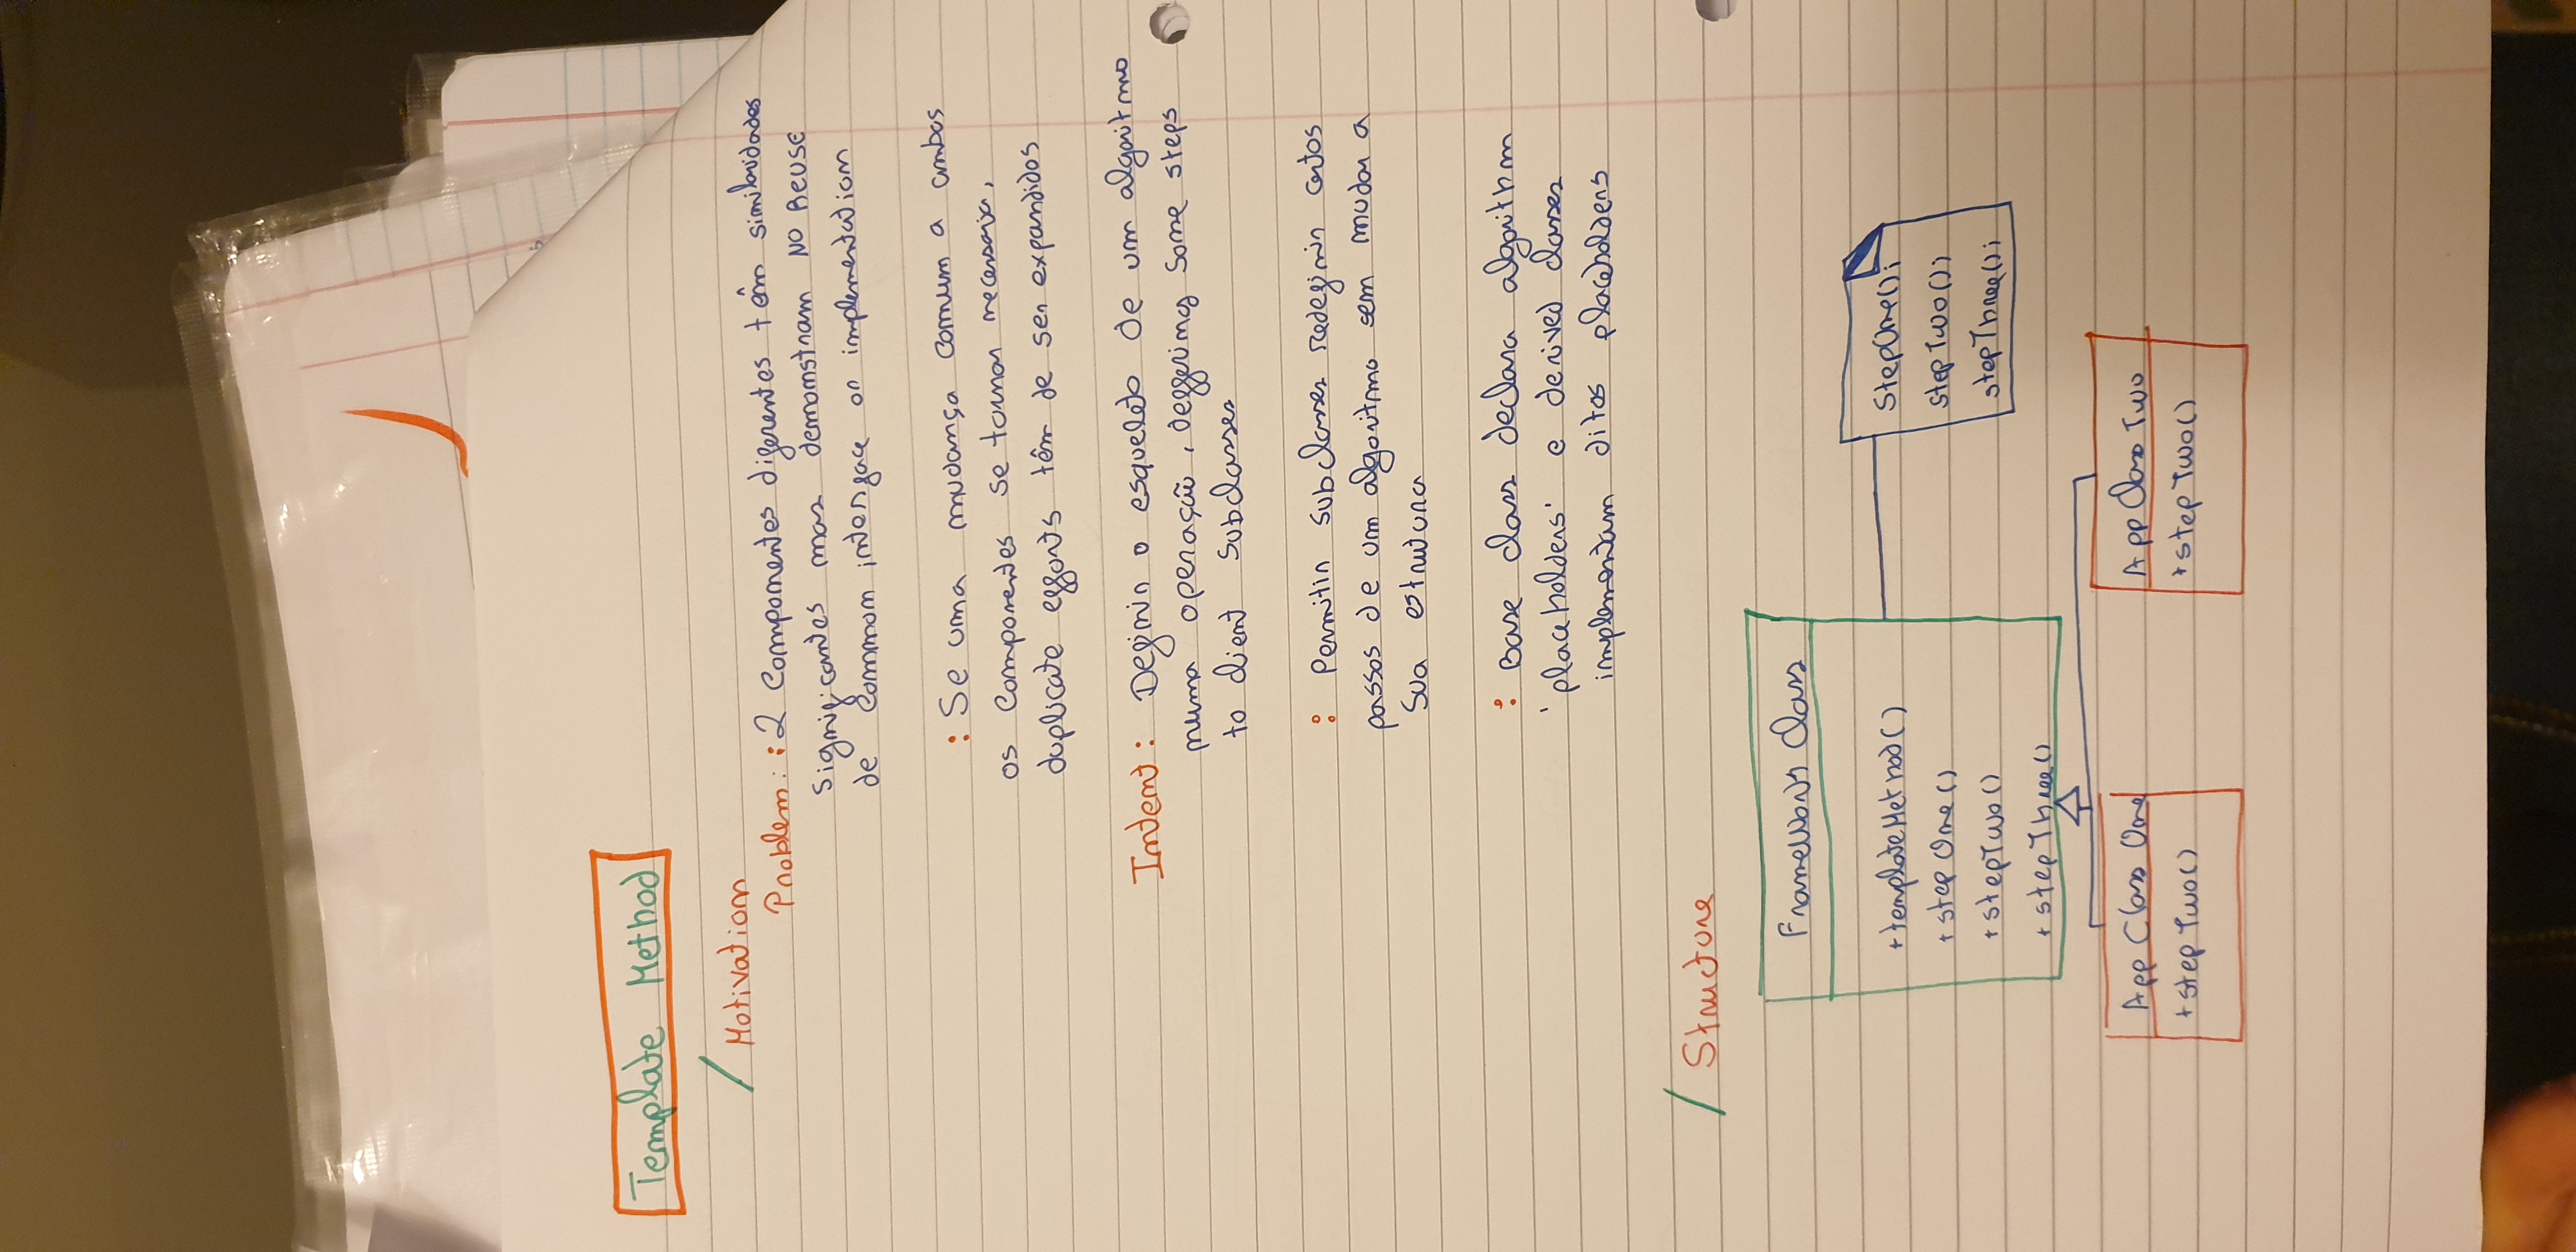 Template Method
/ Motivation
Problem: : 2 Componentes diferentes têm similaridades
significantes mas demonstram NO REUSE
de common interface or implementation
: Se uma mudança comum a ambos
os componentes se tornar necessaria,
duplicate efforts têm de ser expandidos
Intent: Definir o esqueleto de um algoritmo
numa operação, deffering some steps
to client subclasses
: Permitir subclasses redefinir certos
passos de um algoritmo sem mudar a
sua estrutura
: Base class declara algorithm
'placeholders' e derived classes
implementam ditos placeholders
/ Structure
Framework Class
+templateMethod()
+stepOne()
+stepTwo()
+stepThree()
StepOne();
stepTwo();
stepThree();
App Class One
+stepTwo()
App Class Two
+stepTwo()